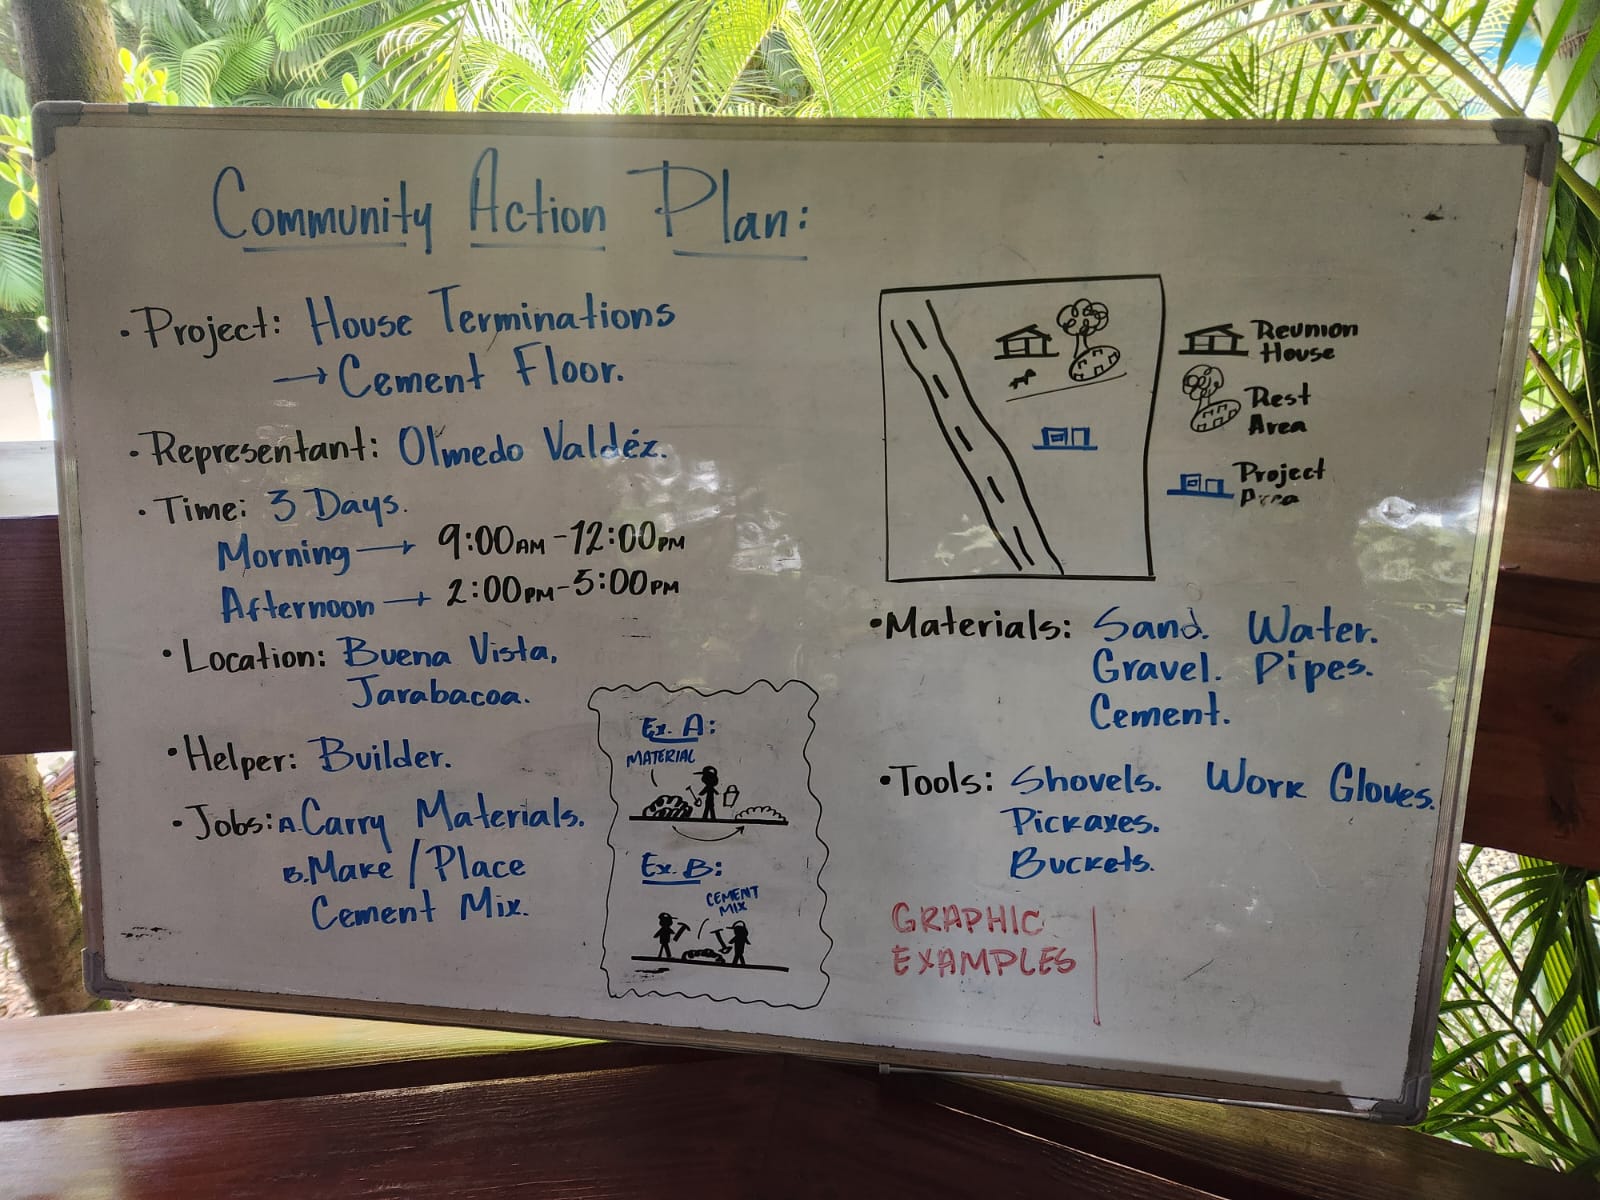 Community Action Plan:
• Project: House Terminations
→ Cement Floor.
• Representant: Olmedo Valdéz.
• Time: 3 Days.
Morning → 9:00AM - 12:00PM
Afternoon → 2:00PM - 5:00PM
• Location: Buena Vista,
Jarabacoa.
• Helper: Builder.
• Jobs: A. Carry Materials.
B. Make / Place
Cement Mix.
Ex. A:
MATERIAL
Ex. B:
CEMENT
MIX
Reunion
House
Rest
Area
Project
Area
• Materials: Sand. Water.
Gravel. Pipes.
Cement.
• Tools: Shovels. Work Gloves.
Pickaxes.
Buckets.
GRAPHIC
EXAMPLES